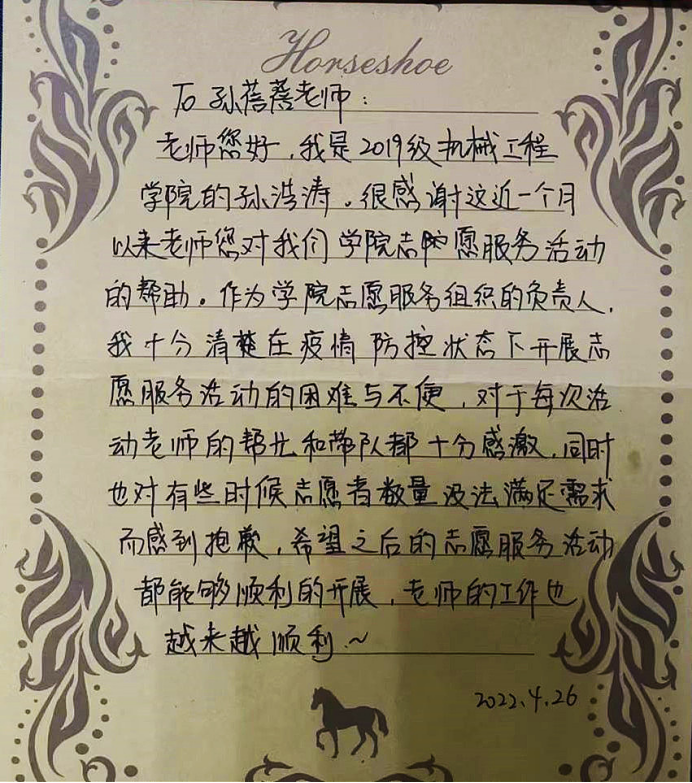 Horseshoe
To 孙蓓蓓老师：
老师您好，我是2019级机械工程
学院的孙浩涛。很感谢这近一个月
以来老师您对我们学院志愿服务活动
的帮助。作为学院志愿服务组织的负责人，
我十分清楚在疫情防控状态下开展志
愿服务活动的困难与不便，对于每次活
动老师的帮忙和带队都十分感激，同时
也对有些时候志愿者数量没法满足需求
而感到抱歉，希望之后的志愿服务活动
都能够顺利的开展，老师的工作也
越来越顺利~
2022.4.26